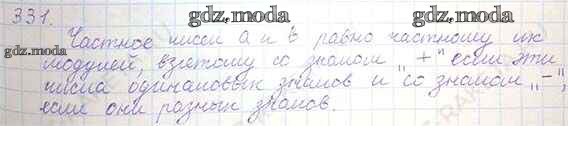 gdz.moda
331.
gdz.moda
Частное чисел a и b равно частному их
gdz.moda
модулей, взятому со знаком „+" если эти
числа одинаковых знаков и со знаком „-",
если они разных знаков.
gdz.moda